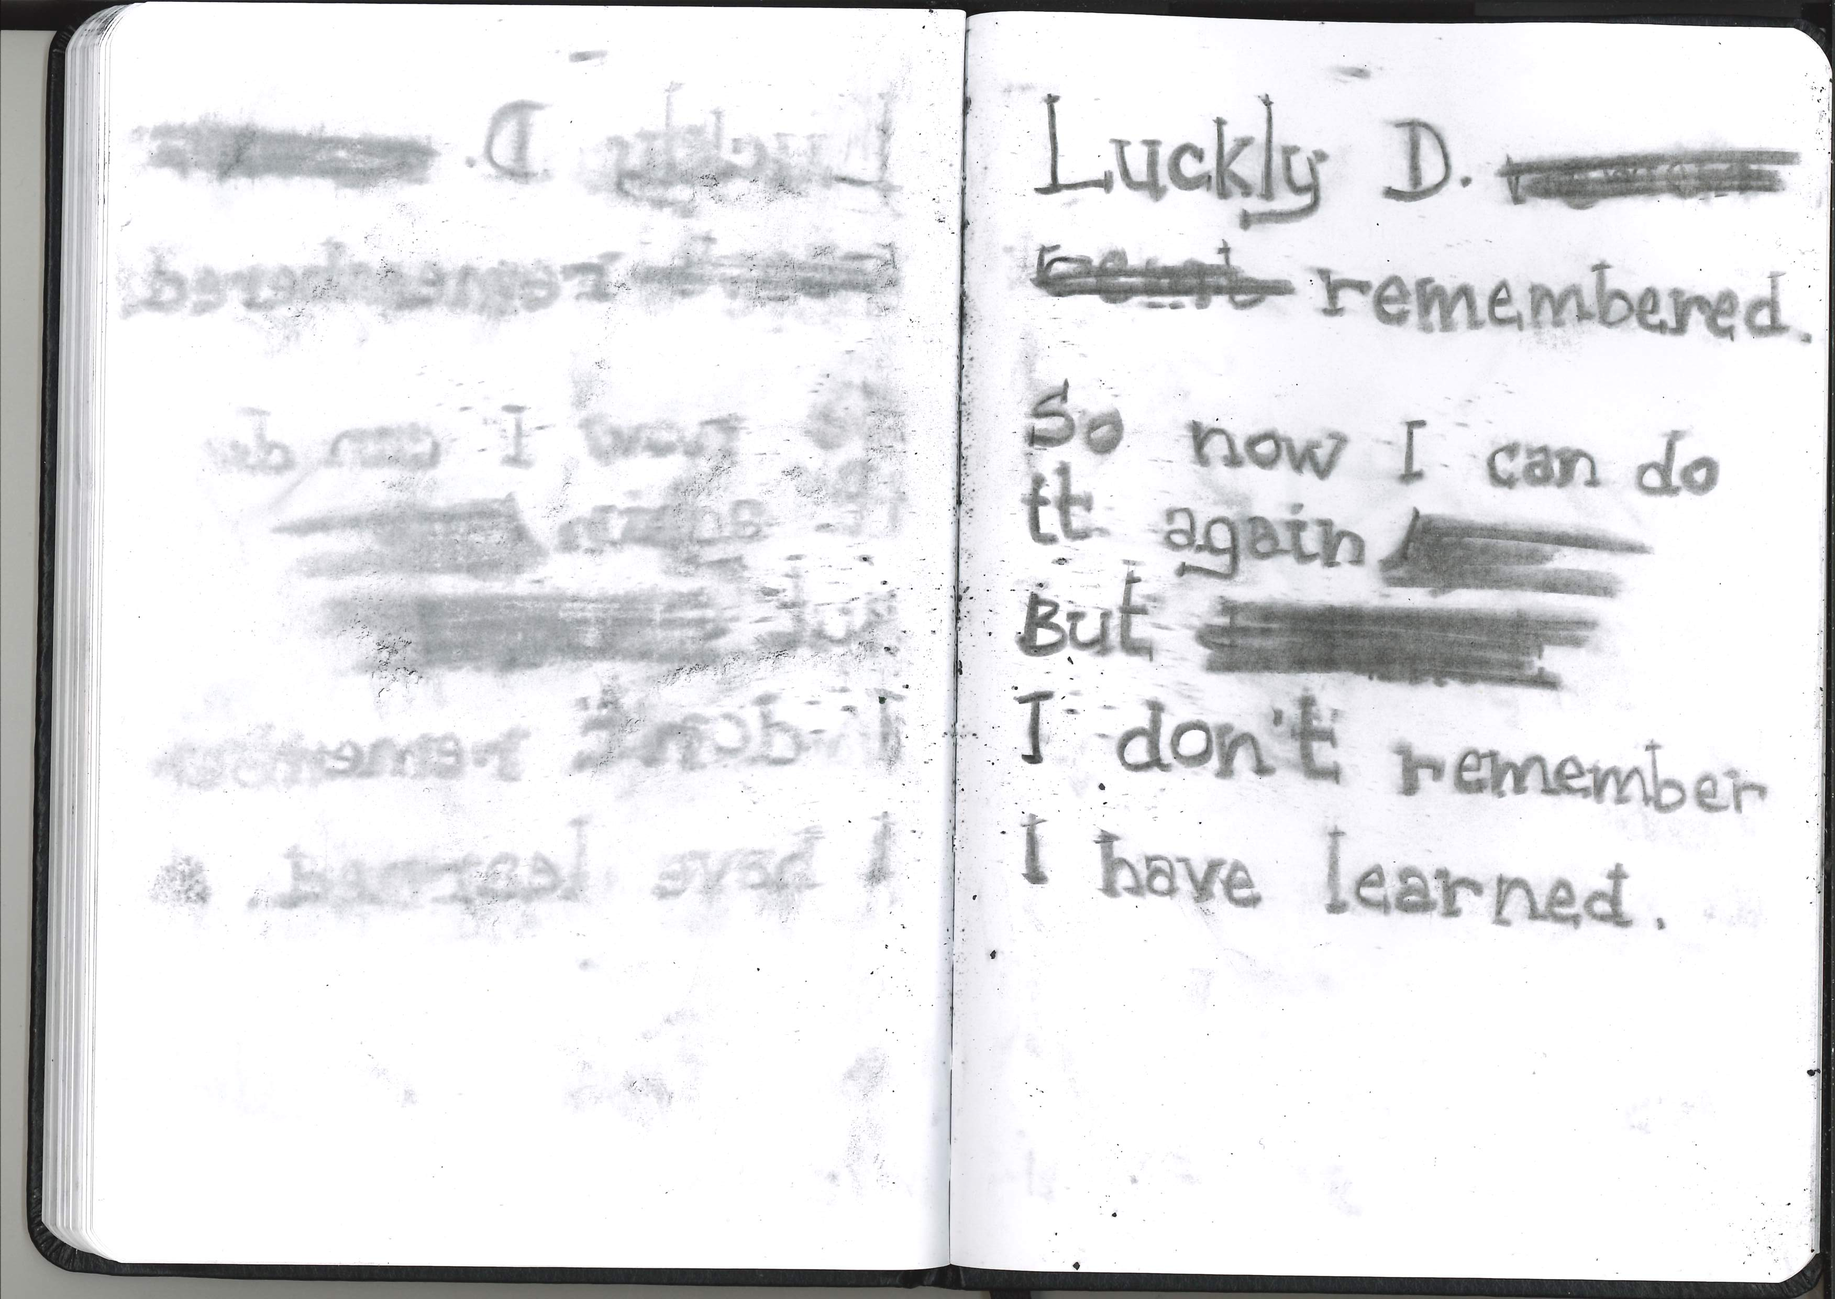 Luckly D.
remembered.
So now I can do
it again
But
I don't remember
I have learned.